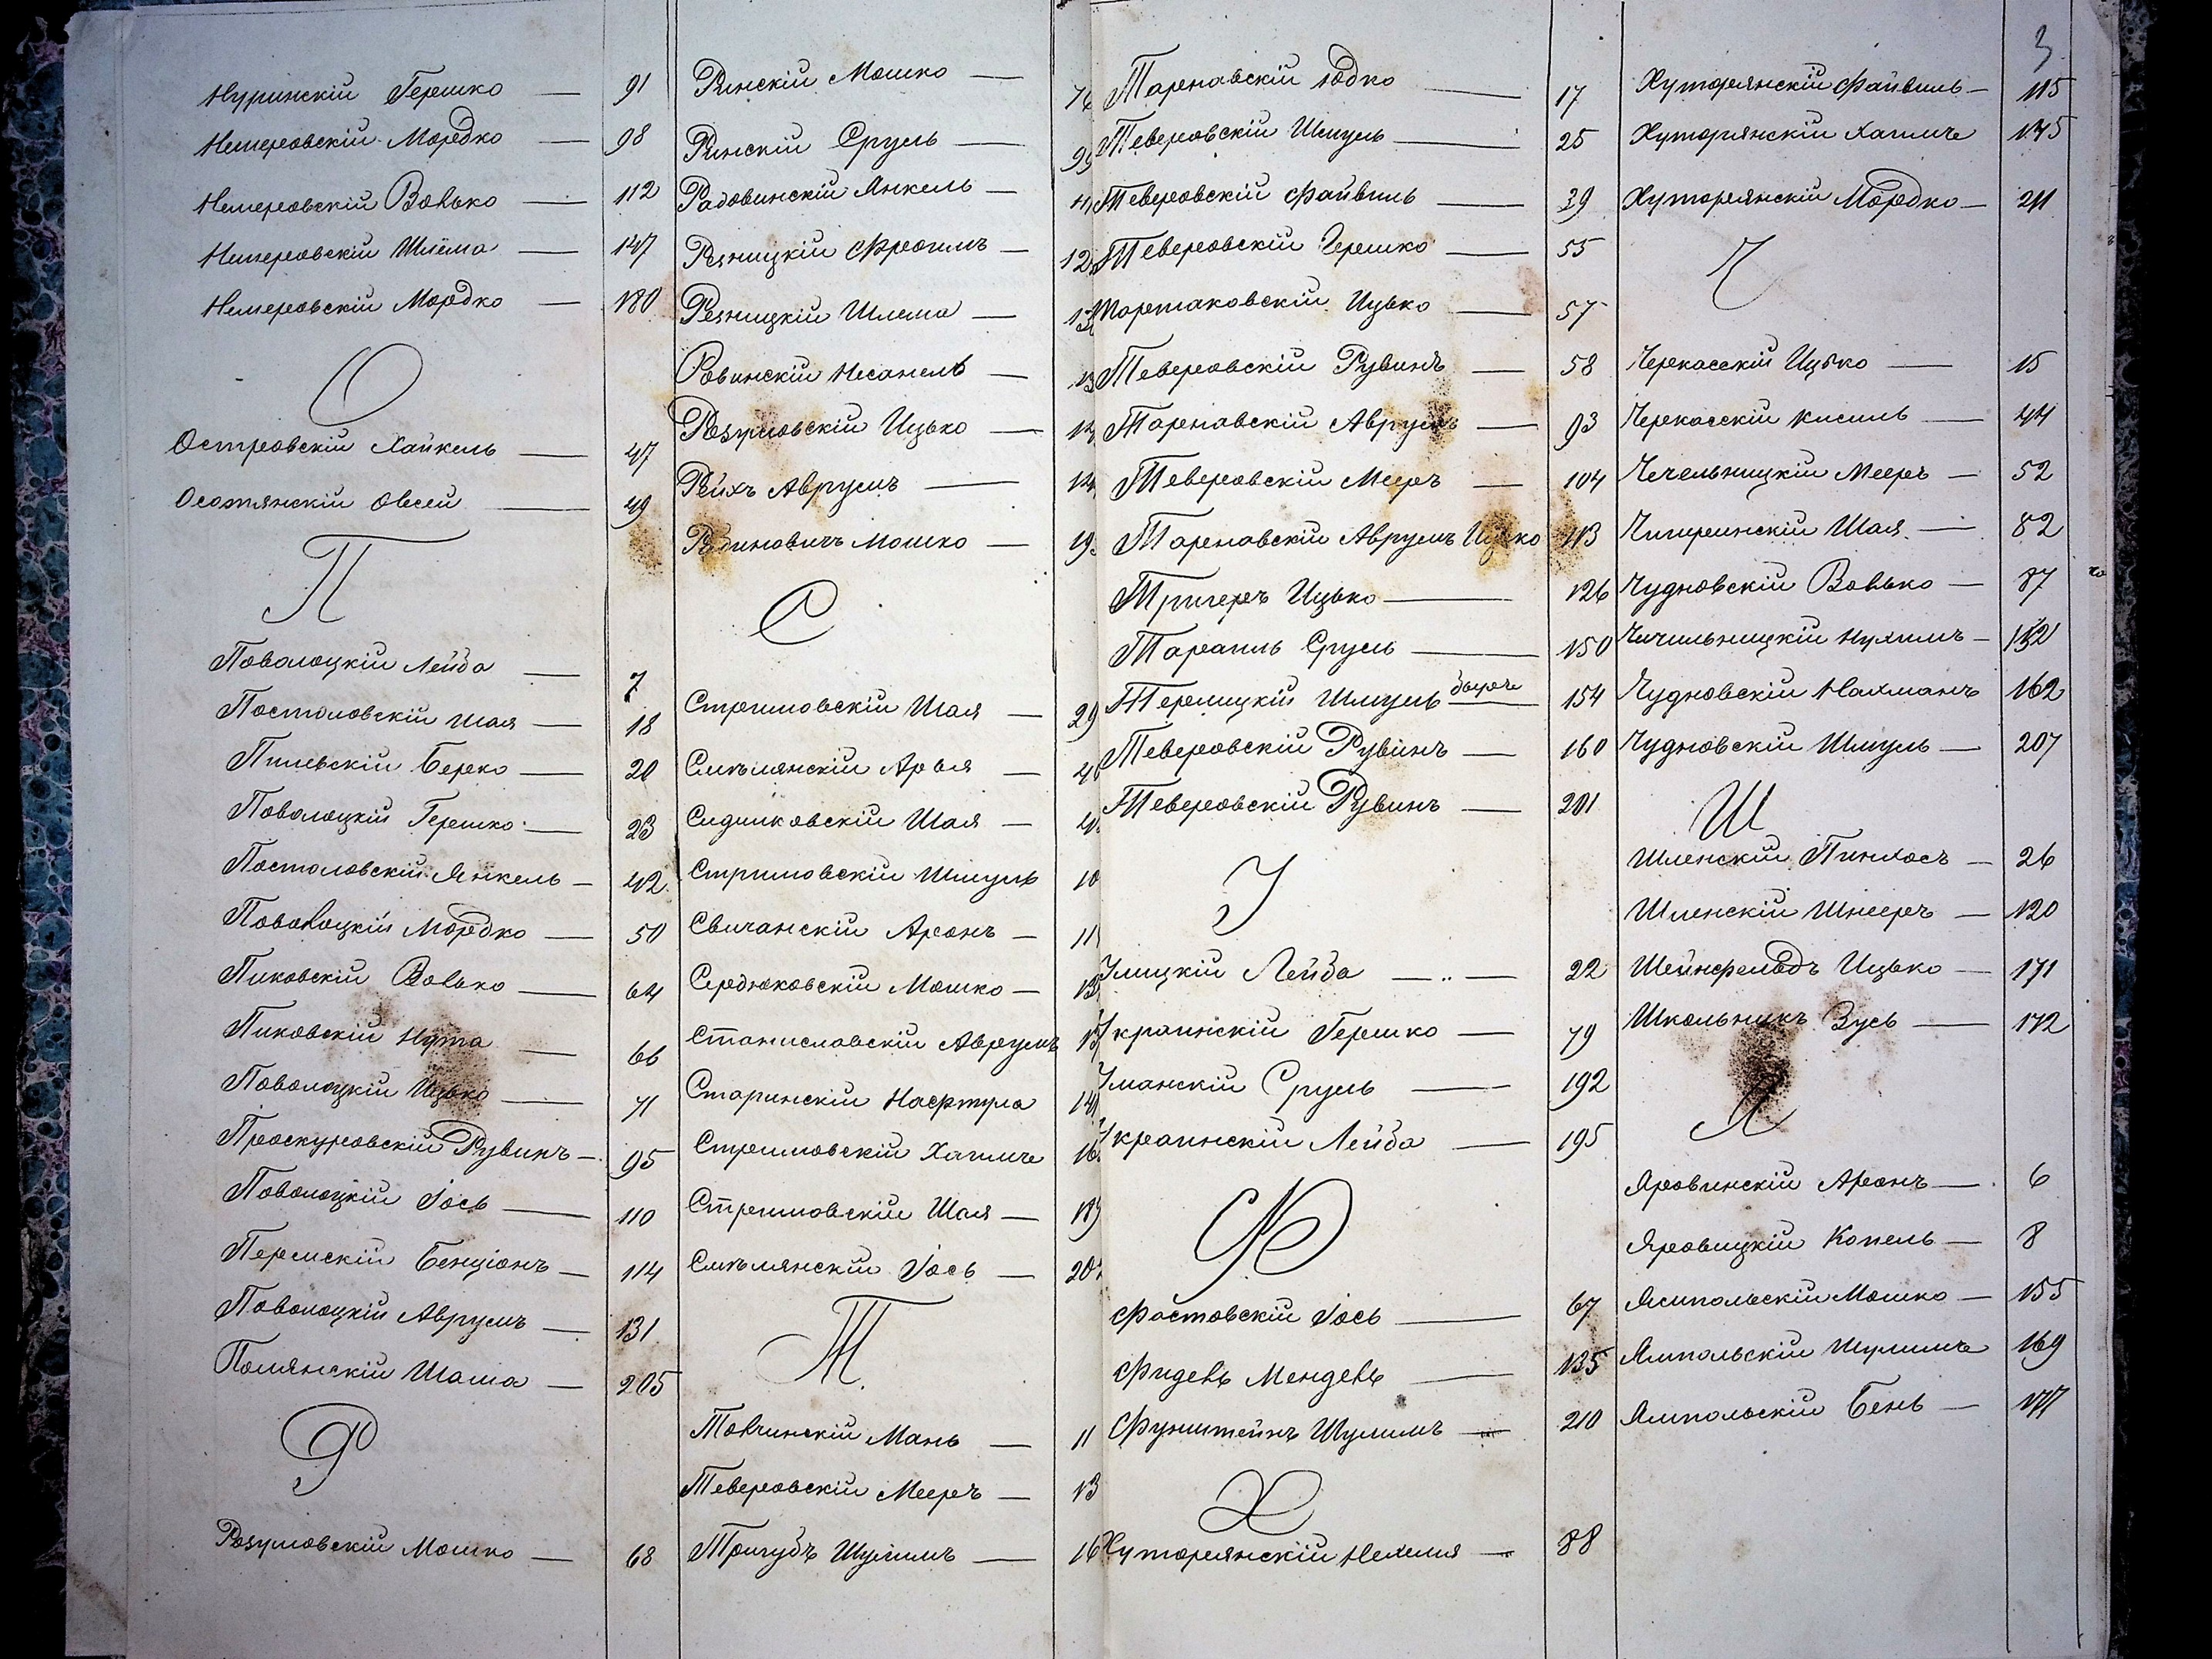 Нуринскій Гершко — 91
Немеровскій Мордко — 98
Немеровскій Волько — 112
Немеровскій Шлёма — 147
Немеровскій Мордко — 180
О
Островскій Хайкель — 47
Осотянскій Овсей — 49
П
Поволоцкій Лейба — 7
Постоловскій Шая — 18
Пилевскій Берко — 20
Поволоцкій Гершко — 23
Постоловскій Янкель — 42
Поволоцкій Мордко — 50
Пиковскій Волько — 64
Пиковскій Нута — 66
Поволоцкій Ицько — 71
Проскуровскій Рувинъ — 95
Поволоцкій Іось — 110
Перлискій Бенціонъ — 114
Поволоцкій Аврумъ — 131
Полянскій Шама — 205
Р
Розумовскій Мошко — 68
Ринскій Мошко —
Ринскій Сруль —
Радовинскій Янкель —
Резницкій Фроимъ —
Резницкій Шлема —
Ровинскій Несанель —
Розумовскій Ицько —
Рейхъ Аврумъ —
Рабиновичъ Мошко —
С
Стрешовскій Шая — 29
Смѣлянскій Арья —
Сидилковскій Шая —
Стримовскій Шмуль
Свичанскій Аронъ —
Середюковскій Мошко —
Станиславскій Аврумъ
Старинскій Нафтула
Стремовскій Хаимъ
Стремовскій Шая —
Смѣлянскій Іось —
Т
Товчинскій Мань — 11
Тверовскій Мееръ — 13
Тригубъ Шулимъ — 16
3
Тарнавскій Юдко — 17
Тевровскій Шмуль — 25
Тевровскій Файвиль — 39
Тевровскій Гершко — 55
Тортаковскій Ицько — 57
Тевровскій Рувинъ — 58
Тарнавскій Аврумъ — 93
Тевровскій Мееръ — 104
Тарнавскій Аврумъ Ицько 113
Тригеръ Ицько — 126
Тарапиль Сруль — 150
Терлицкій Шмуль — 154
Тевровскій Рувинъ — 160
Тевровскій Рувинъ — 201
У
Улицкій Лейба — 22
Украинскій Гершко — 79
Уманскій Сруль — 192
Украинскій Лейба — 195
Ф
Фастовскій Іось — 67
Фидель Мендель — 135
Фунштейнъ Шулимъ — 210
Х
Хуторянскій Нехемия — 88
Хуторянскій Файвиль — 115
Хуторянскій Хаимъ 145
Хуторянскій Мордко — 211
Ч
Черкасскій Ицько — 15
Черкасскій Кисиль — 44
Чечельницкій Мееръ — 52
Чигиринскій Шая — 82
Чудновскій Волько — 87
Чичильницкій Нухимъ — 132
Чудновскій Нахманъ 162
Чудновскій Шмуль — 207
Ш
Шленскій Пинхосъ — 26
Шленскій Шнееръ — 120
Шейнфельдъ Ицько — 171
Школьникъ Зусь — 172
Я
Яровинскій Аронъ — 6
Яровицкій Копель — 8
Ямпольскій Мошко — 155
Ямпольскій Шулимъ 169
Ямпольскій Бень — 177